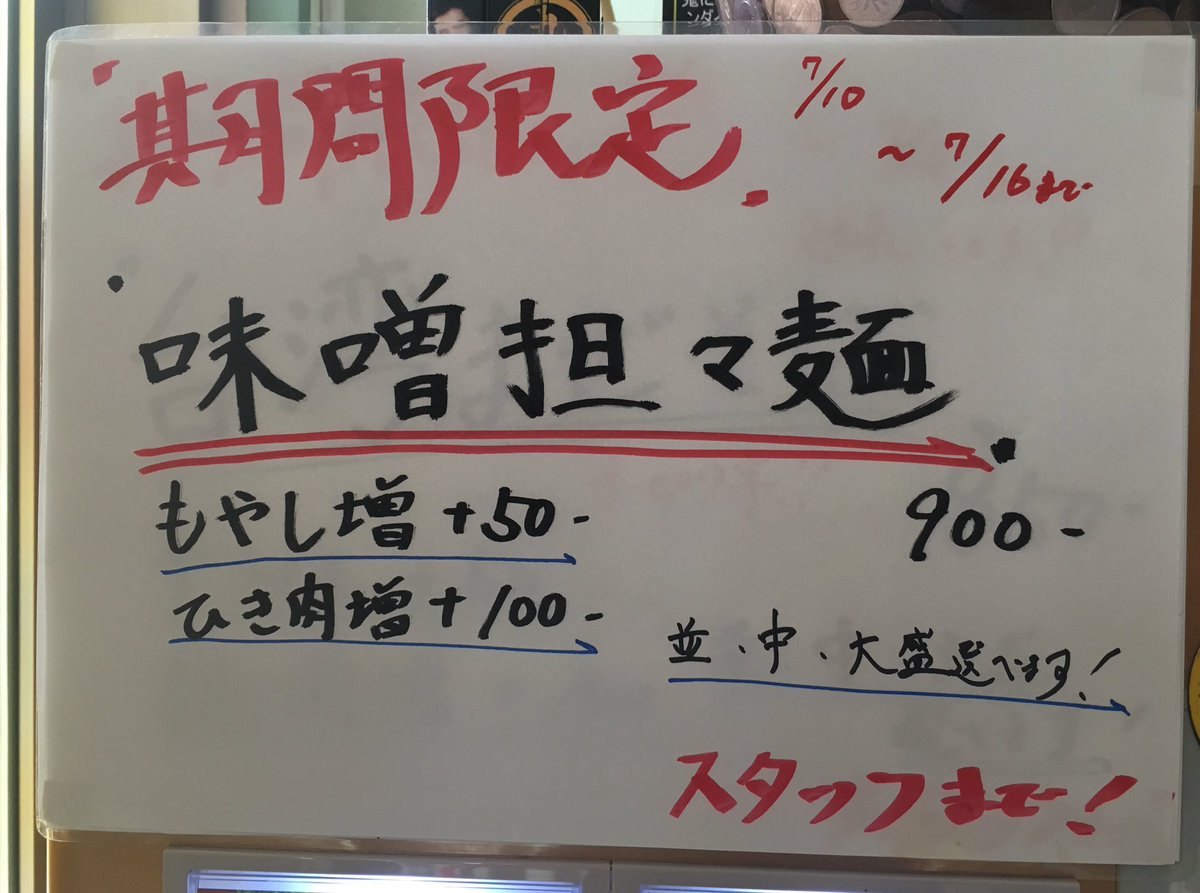 期間限定 7/10
～7/16まで
味噌担々麺
900-
もやし増+50-
ひき肉増+100-
並、中、大盛選べます！
スタッフまで！